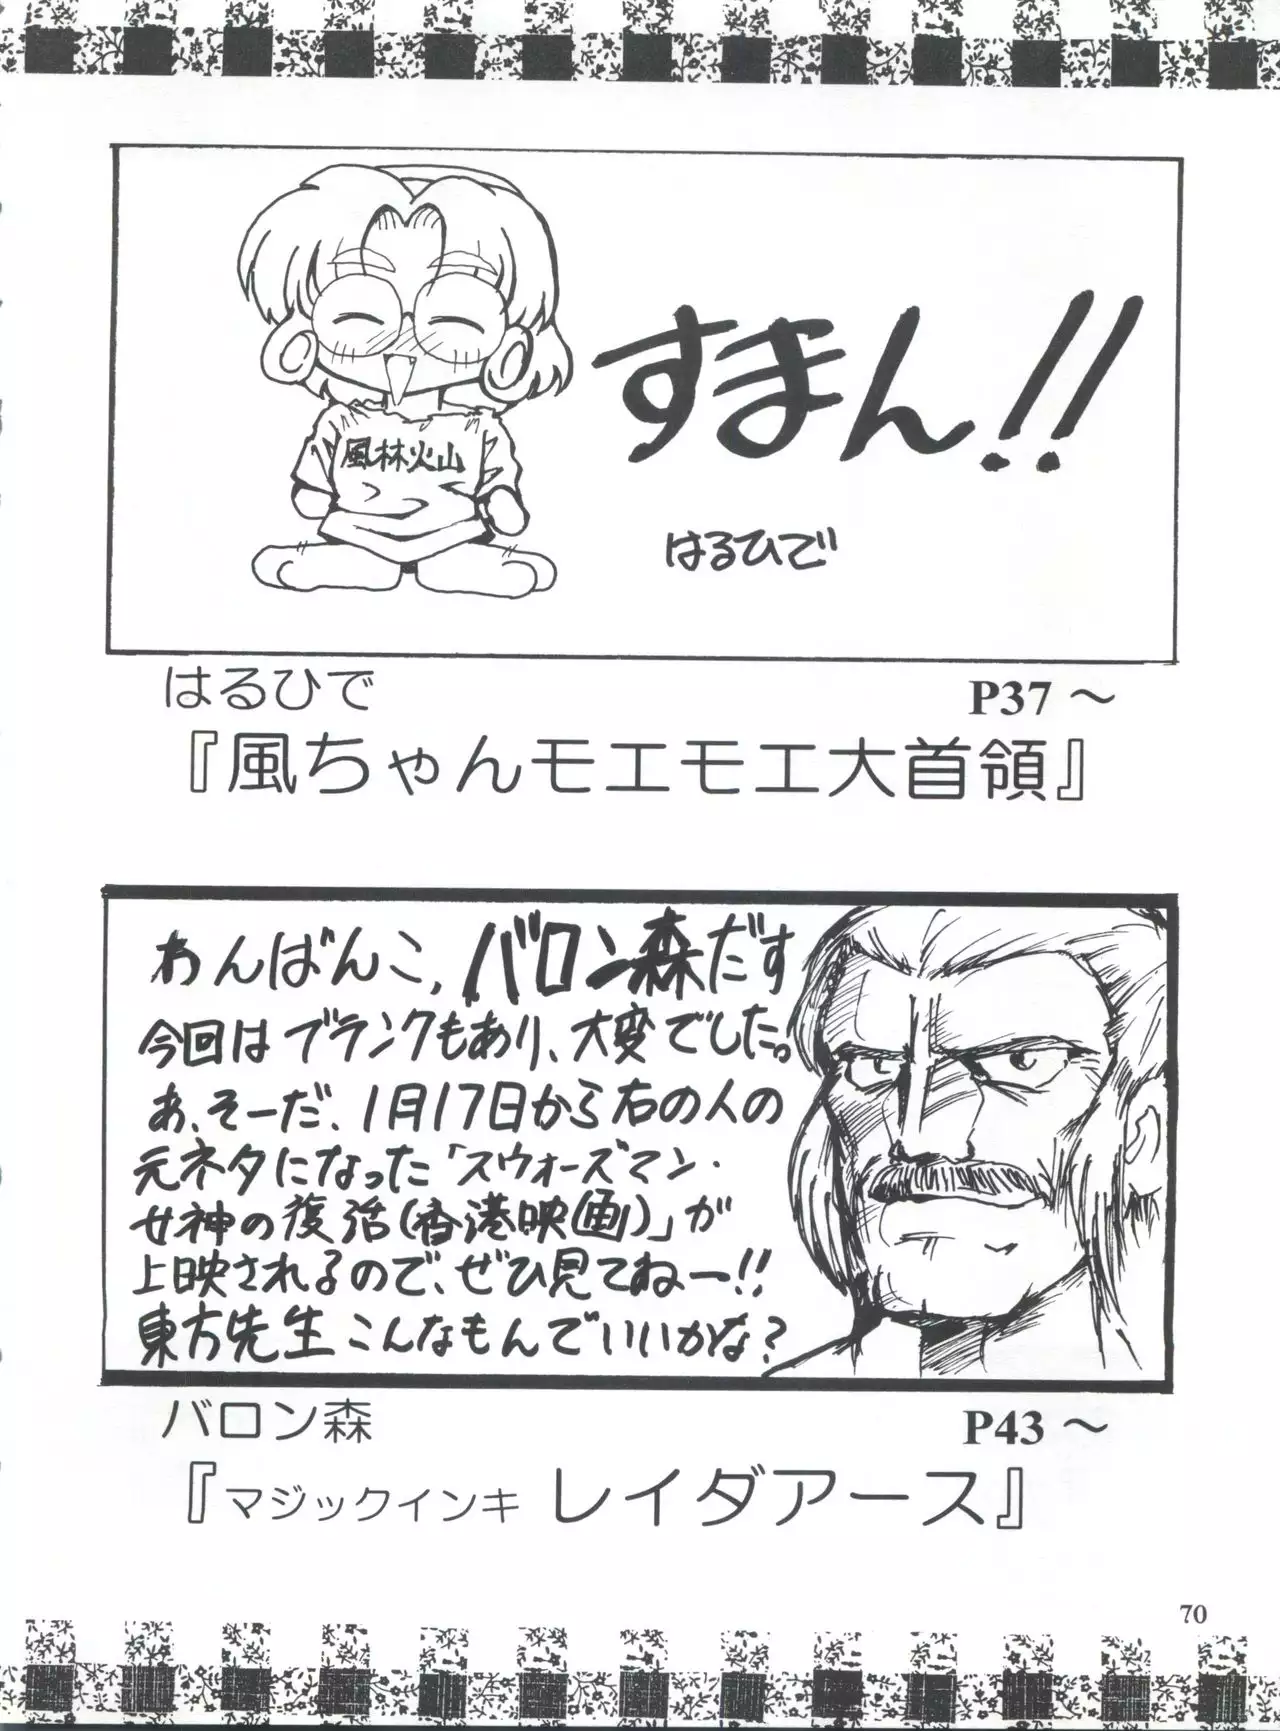 すまん!!
風林火山
はるひで
はるひで
P37 ～
『風ちゃんモエモエ大首領』
わんばんこ,バロン森だす
今回はブランクもあり、大変でした。
あ、そーだ、1月17日から右の人の
元ネタになった「スウォーズマン・
女神の復活(香港映画)」が
上映されるので、ぜひ見てねー!!
東方先生こんなもんでいいかな?
バロン森
P43 ～
『マジックインキ レイダアース』
70